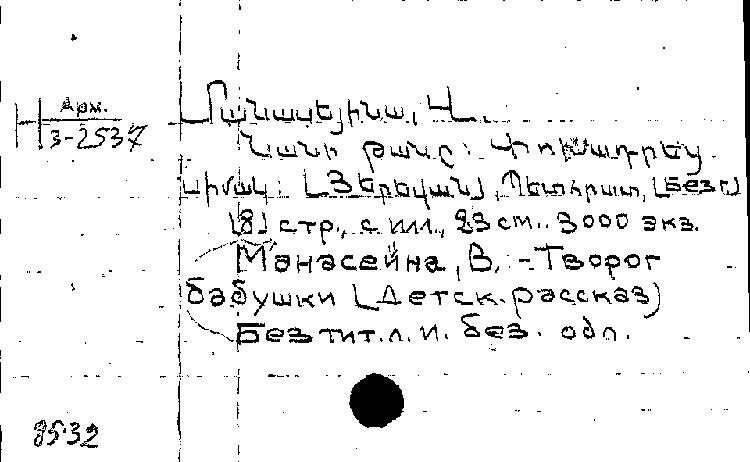 Н Арм.
3-2537
Մանասեյինա, Վ.
Նանի թանը: Փոխադրեց
Սիմակ: [Երեվան], Պետհրատ, [Без г.]
[8] стр., с илл., 23 см.. 3000 экз.
Манасейна, В. - Творог
бабушки (Детск. рассказ)
Без тит. л. и. без. обл.
8532